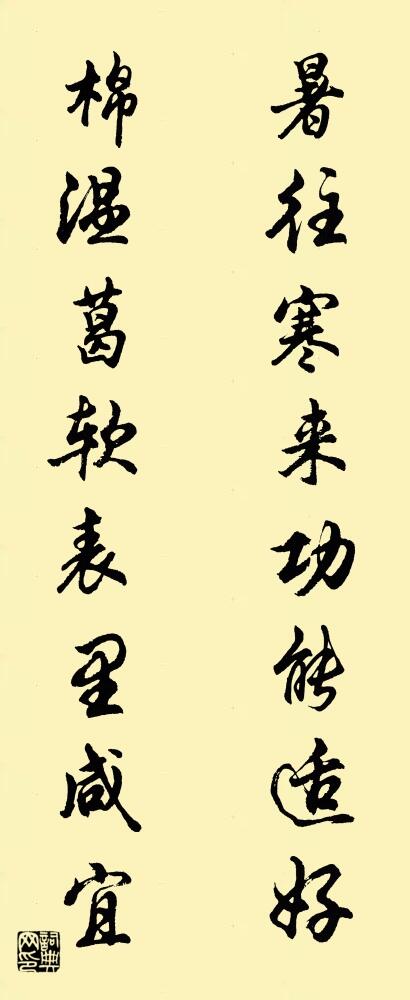 暑往寒来功能适好
棉温葛软表里咸宜
词典网印